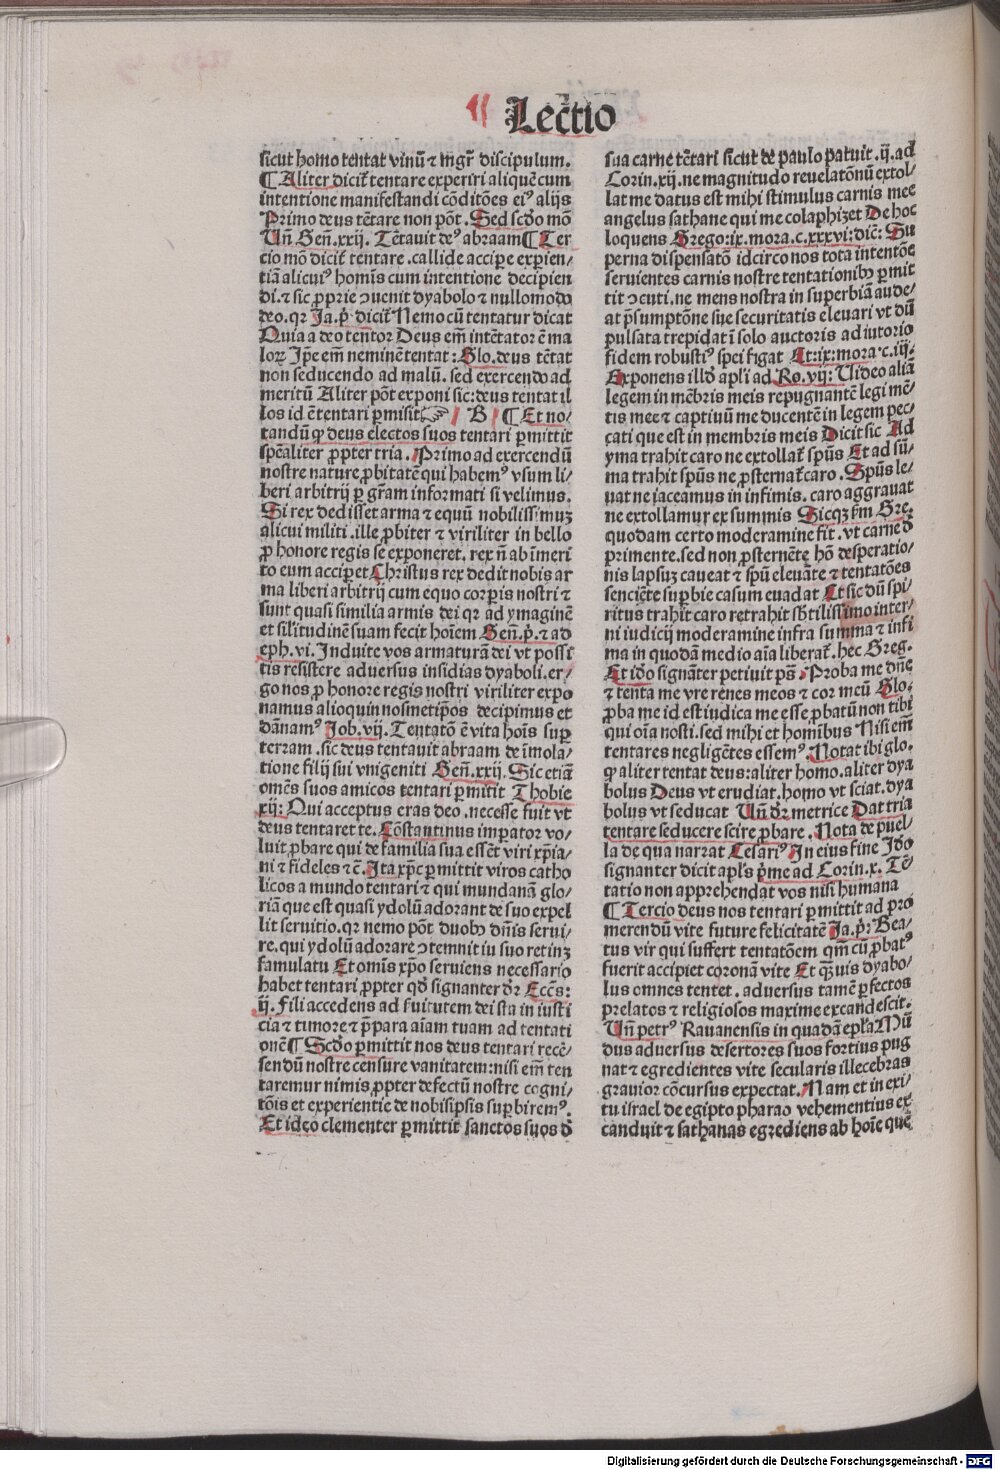 Lectio
sicut homo tentat vinũ ⁊ mg̃r discipulum.
¶ Aliter dicit̃ tentare experiri aliquẽ cum
intentione manifestandi cõditões eiꝰ alijs
Primo deus tẽtare non põt. Sed scđo mõ
Vñ Geñ.xxij. Tẽtauit deꝰ abraam ¶ Ter
cio mõ dicit̃ tentare.callide accipe experien/
tiã alicuiꝰ homĩs cum intentione decipien
di.⁊ sic ꝓprie ↄuenit dyabolo ⁊ nullomodo
deo.qr Ja.p̃ dicit̃ Nemo cũ tentatur dicat
Quia a deo tentor Deus em̃ intẽtator ẽ ma
loꝝ Jpe em̃ neminẽ tentat: Glo.deus tẽtat
non seducendo ad malũ. sed exercendo ad
meritũ Aliter põt exponi sic:deus tentat il
los id ẽ tentari ꝑmisit ☞ B ¶ Et no/
tandũ ꝙ deus electos suos tentari ꝑmittit
spẽaliter ꝓpter tria. Primo ad exercendũ
nostre nature ꝓbitatẽ qui habemꝰ vsum li/
beri arbitrij ꝑ gr̃am informati si velimus.
Si rex dedisset arma ⁊ equũ nobilissimuꝫ
alicui militi .ille ꝓbiter ⁊ viriliter in bello
ꝓ honore regis se exponeret. rex ñ ab imeri
to eum acciperet Christus rex dedit nobis ar
ma liberi arbitrij cum equo corꝑis nostri ⁊
sunt quasi similia armis dei qr ad ymaginẽ
et silitudinẽ suam fecit hoĩem Geñ.p̃.⁊ ad
eph.vi. Induite vos armaturã dei vt possi
tis resistere aduersus insidias dyaboli.er/
go nos ꝓ honore regis nostri viriliter expo
namus alioquin nosmetipõs decipimus et
dãnamꝰ Job.vij. Tentatõ ẽ vita hoĩs suꝑ
terram .sic deus tentauit abraam de ĩmola/
tione filij sui vnigeniti Geñ.xxij. Sic etiã
omẽs suos amicos tentari ꝑmitit Thobie
xij: Qui acceptus eras deo.necesse fuit vt
deus tentaret te. Cõstantinus imꝑator vo/
luit ꝓbare qui de familia sua essẽt viri xp̃ia/
ni ⁊ fideles ⁊ c̃. Ita xp̃c ꝑmittit viros catho
licos a mundo tentari ⁊ qui mundanã glo/
riã que est quasi ydolũ adorant de suo expel
lit seruitio.qr nemo põt duobꝰ dñis serui/
re.qui ydolũ adorare ↄtemnit iu suo retinꝫ
famulatu Et omĩs xp̃o seruiens necessario
habet tentari ꝓpter qđ signanter đr Eccs̃:
ij. Fili accedens ad seruitutem dei sta in iusti
cia ⁊ timore ⁊ p̃para aĩam tuam ad tentati
onẽ ¶ Scđo ꝑmittit nos deus tentari recẽ/
sendũ nostre censure vanitatem:nisi em̃ ten
taremur nimis ꝓpter defectũ nostre cogni/
tõis et experientie de nobisipsis suꝑbiremꝰ.
Et ideo clementer ꝑmittit sanctos suos đ
sua carne tẽtari sicut de paulo patuit .ij.ad
Corin.xij.ne magnitudo reuelatõnũ extol/
lat me datus est mihi stimulus carnis mee
angelus sathane qui me colaphizet De hoc
loquens Grego:ix.mora.c.xxxvi:dic̃: Su
perna dispensatõ idcirco nos tota intentõe
seruientes carnis nostre tentationibꝰ ꝑmit
tit ↄcuti.ne mens nostra in superbiã aude/
at p̃sumptõne sue securitatis eleuari vt dũ
pulsata trepidat ĩ solo auctoris adiutorio
fidem robustiꝰ spei figat Et:ix:mora.c.iij.
Exponens illđ apli ad Ro.vij: Uideo aliã
legem in mẽbris meis repugnantẽ legi mẽ/
tis mee ⁊ captiuũ me ducentẽ in legem pec/
cati que est in membris meis Dicit sic Ad
yma trahit caro ne extollat̃ sp̃us Et ad sũ/
ma trahit sp̃us ne ꝓsternat̃ caro. Sp̃us le/
uat ne jaceamus in infimis. caro aggrauat
ne extollamur ex summis Sicqꝫ fm Gre.
quodam certo moderamine fit.vt carnẽ đ
primente.sed non ꝓsternẽte hõ desperatio/
nis lapsuꝫ caueat ⁊ sp̃u eleuãte ⁊ tentatões
senciẽte suꝑbie casum euadat Et sic dũ spi/
ritus trahit caro retrahit sb̃tilissimo inter/
ni iudicij moderamine infra summa ⁊ infi
ma in quodã medio aĩa liberat̃.hec Greg.
Et iđo signãter petiuit ps̃. Proba me dñe
⁊ tenta me vre renes meos ⁊ cor meũ Glo.
ꝓba me id est iudica me esse ꝓbatũ non tibi
qui oĩa nosti.sed mihi et homĩbus Nisi em̃
tentares negligẽtes essemꝰ. Notat ibi glo.
ꝙ aliter tentat deus:aliter homo.aliter dya
bolus Deus vt erudiat.homo vt sciat.dya
bolus vt seducat Uñ đr metrice Dat tria
tentare seducere scire ꝓbare. Nota de puel/
la de qua narrat Cesariꝰ In eius fine Iđo
signanter dicit apls̃ p̃me ad Corin.x. Tẽ/
tatio non apprehendat vos nisi humana
¶ Tercio deus nos tentari ꝑmittit ad pro
merendũ vite future felicitatẽ Ja.p̃: Bea/
tus vir qui suffert tentatõem qm̃ cũ ꝓbatꝰ
fuerit accipiet coronã vite Et q̃uis dyabo/
lus omnes tentet. aduersus tamẽ ꝑfectos
prelatos ⁊ religiosos maxime excandescit.
Vñ petrꝰ Rauanensis in quadã epl̃a. Mũ
dus aduersus desertores suos fortius pug
nat ⁊ egredientes vite secularis illecebras
grauior cõcursus expectat. Nam et in exi/
tu israel de egipto pharao vehementius ex
canduit ⁊ sathanas egrediens ab hoĩe que
Digitalisierung gefördert durch die Deutsche Forschungsgemeinschaft - DFG